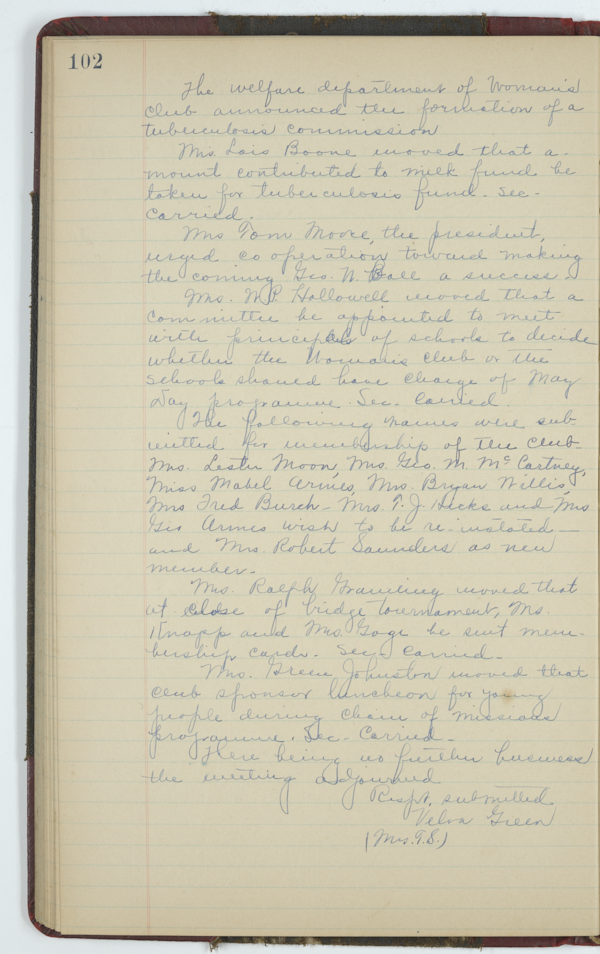 102
The welfare department of Woman's
Club announced the formation of a
tuberculosis commission
Mrs. Lois Boone moved that a-
mount contributed to milk fund be
taken for tuberculosis fund. Sec-
Carried.
Mrs Tom Moore, the president,
urged co operation toward making
the coming Geo. W. Ball a success.
Mrs. W.P. Hallowell moved that a
Committee be appointed to meet
with principals of schools to decide
whether the Woman's Club or the
Schools should have charge of May
Day programme. Sec- Carried.
The following names were sub-
mitted for membership of the Club-
Mrs. Lester Moon, Mrs. Geo. M. McCartney,
Miss Mabel Armes, Mrs. Bryan Willis,
Mrs Fred Burch- Mrs. T. J. Hicks and Mrs
Geo Armes wish to be re-instated-
and Mrs. Robert Saunders as new
member-
Mrs. Ralph Gramling moved that
at close of bridge tournament, Mrs.
Knapp and Mrs. be sent mem-
bership cards. Sec- Carried-
Mrs. Green Johnston moved that
Club sponsor luncheon for young
people during Chain of Missions
programme. Sec- Carried-
There being no further business
the meeting adjourned
Respt. submitted
Velva Green
(Mrs. T.S.)